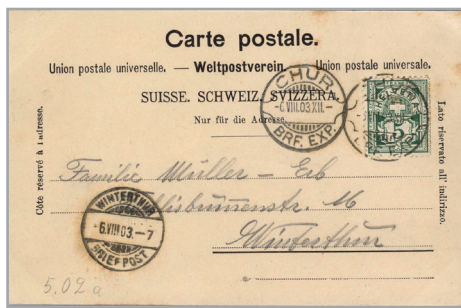 Carte postale.
Union postale universelle. — Weltpostverein. Union postale universale.
SUISSE. SCHWEIZ. SVIZZERA.
Nur für die Adresse.
Côte réservé à l'adresse.
Lato riservato all' indirizzo.
CHUR
-6.VIII.03.XII.-
BRF. EXP.
HELVETIA
5
Familie Müller - Erb
16
Winterthur
WINTERTHUR
-6.VIII.03.-7
BRIEFPOST
5.02 a